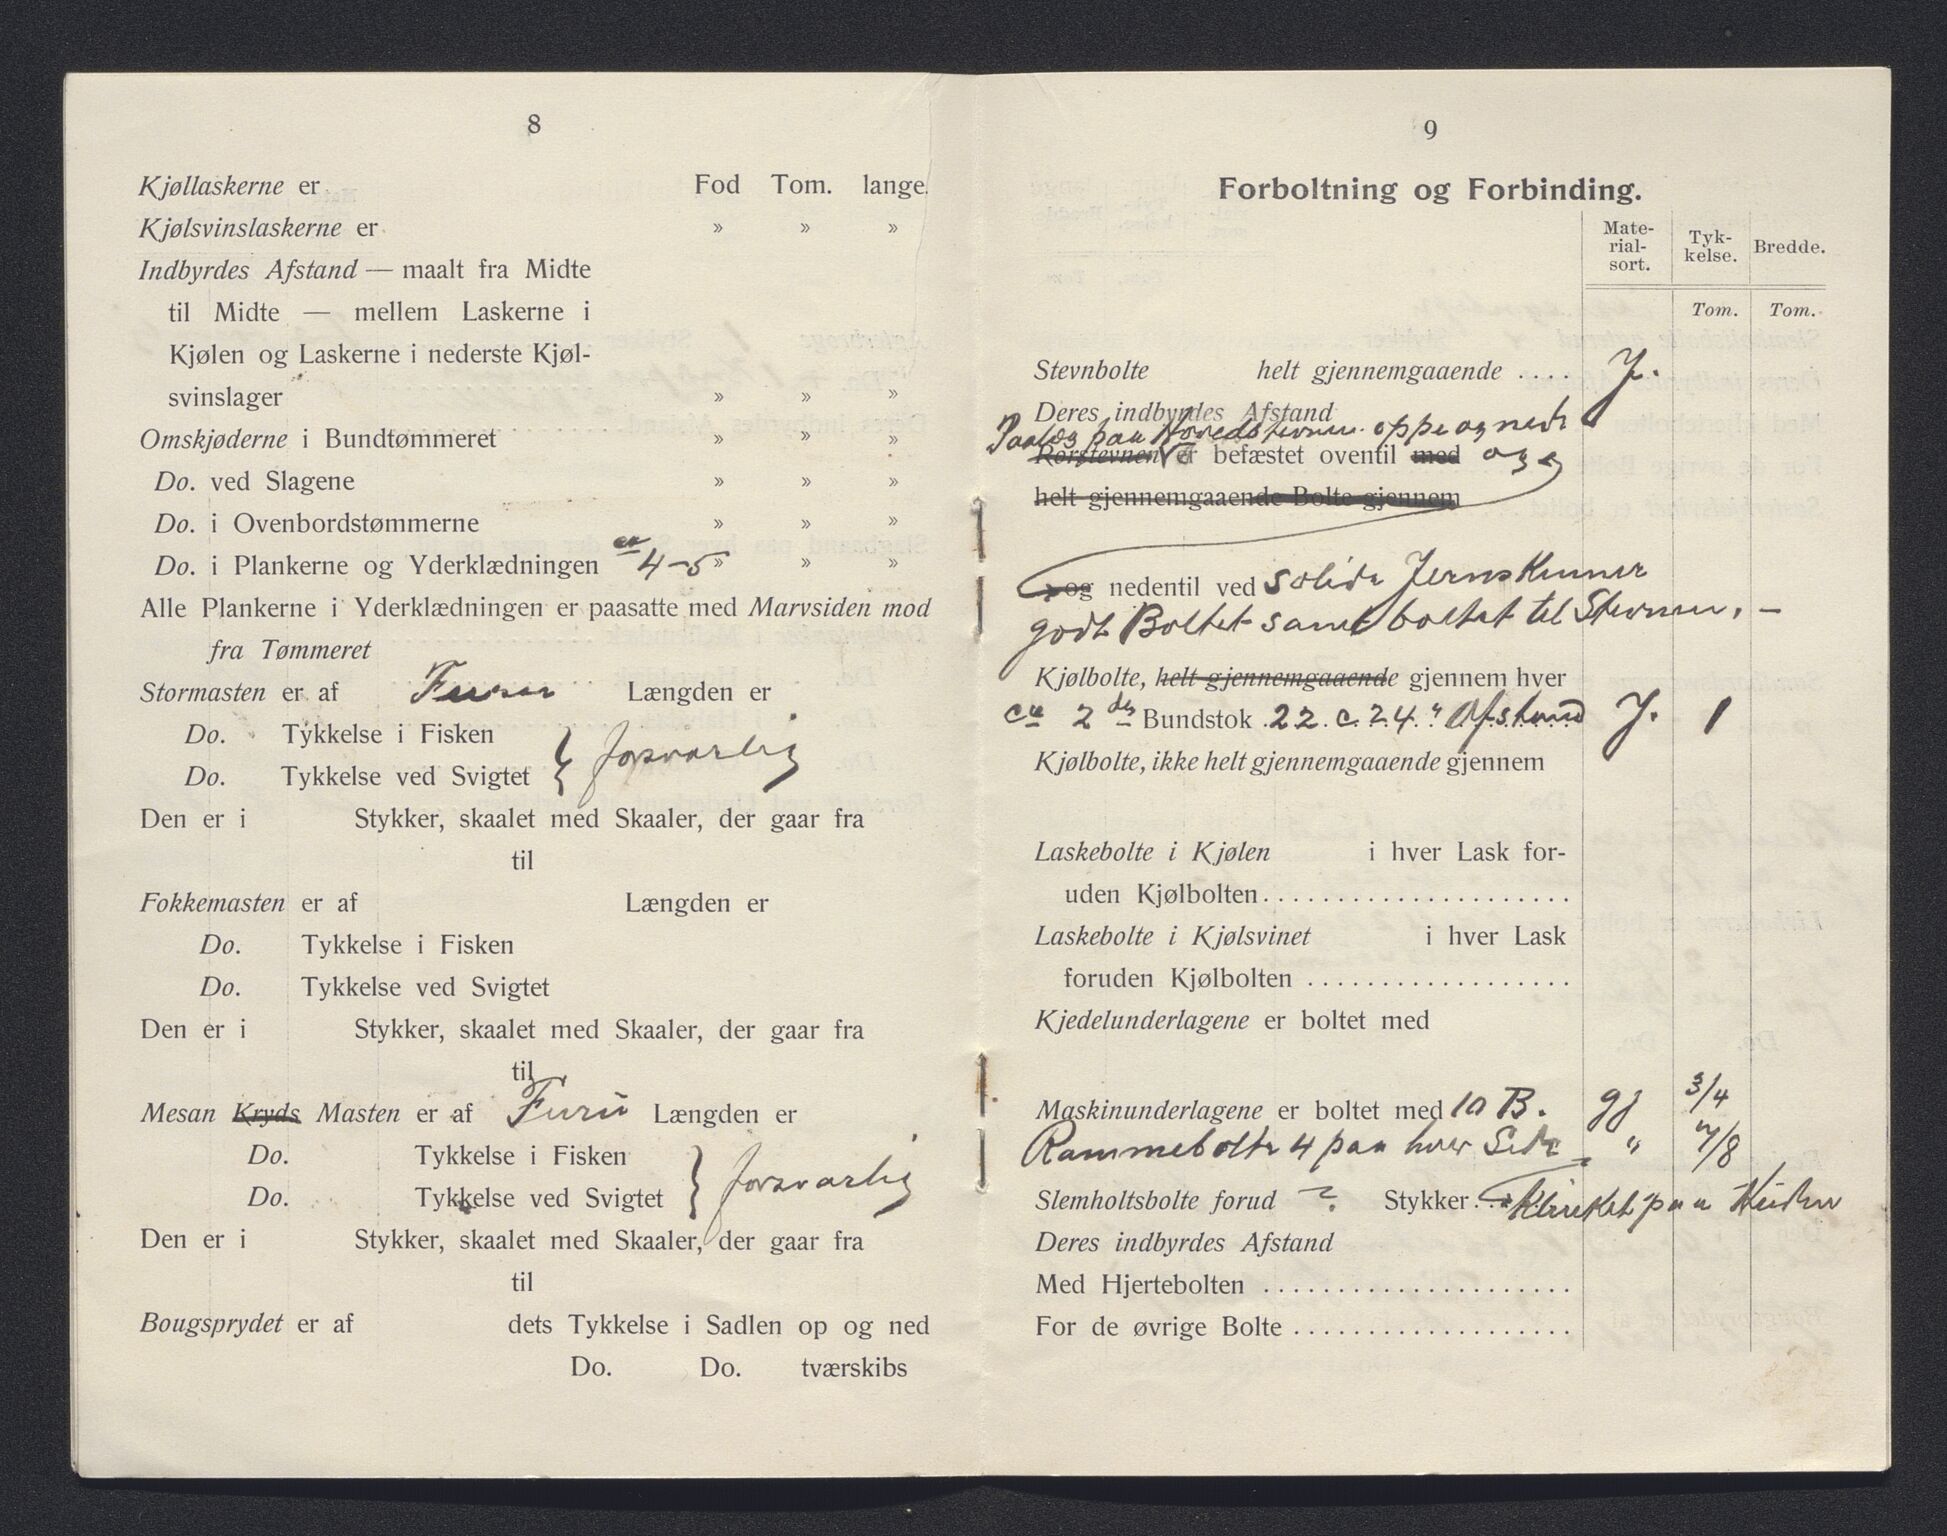 8
Kjøllaskerne er Fod Tom. lange.
Kjølsvinslaskerne er » » »
Indbyrdes Afstand — maalt fra Midte
til Midte — mellem Laskerne i
Kjølen og Laskerne i nederste Kjøl-
svinslager » » »
Omskjøderne i Bundtømmeret » » »
Do. ved Slagene » » »
Do. i Ovenbordstømmerne » » »
Do. i Plankerne og Yderklædningen ca 4-5 » » »
Alle Plankerne i Yderklædningen er paasatte med Marvsiden mod
fra Tømmeret
Stormasten er af Længden er
Do. Tykkelse i Fisken
Do. Tykkelse ved Svigtet } forsvarlig
Den er i Stykker, skaalet med Skaaler, der gaar fra
til
Fokkemasten er af Længden er
Do. Tykkelse i Fisken
Do. Tykkelse ved Svigtet
Den er i Stykker, skaalet med Skaaler, der gaar fra
til
Mesan Kryds Masten er af Furu Længden er
Do. Tykkelse i Fisken
Do. Tykkelse ved Svigtet } forsvarlig
Den er i Stykker, skaalet med Skaaler, der gaar fra
til
Bougsprydet er af dets Tykkelse i Sadlen op og ned
Do. Do. tværskibs
9
Forboltning og Forbinding.
Mate-
rial-
sort. Tyk-
kelse. Bredde.
Tom. Tom.
Stevnbolte helt gjennemgaaende .... J.
Deres indbyrdes Afstand
Paalæg paa oppe og nede
Rorstevnen er befæstet oventil med og
helt gjennemgaaende Bolte gjennem
og nedentil ved solide Jernskinner
godt Boltet samt boltet til Stevnen. -
Kjølbolte, helt gjennemgaaende gjennem hver
ca 2 den Bundstok 22. c. 24." Afstand J. 1
Kjølbolte, ikke helt gjennemgaaende gjennem
Laskebolte i Kjølen i hver Lask for-
uden Kjølbolten......................
Laskebolte i Kjølsvinet i hver Lask
foruden Kjølbolten ...................
Kjedelunderlagene er boltet med
Maskinunderlagene er boltet med 10 B. gj 3/4
Rammebolte 4 paa hver Side " 7/8
Slemholtsbolte forud ? Stykker Klinket paa
Deres indbyrdes Afstand
Med Hjertebolten ......................
For de øvrige Bolte ....................